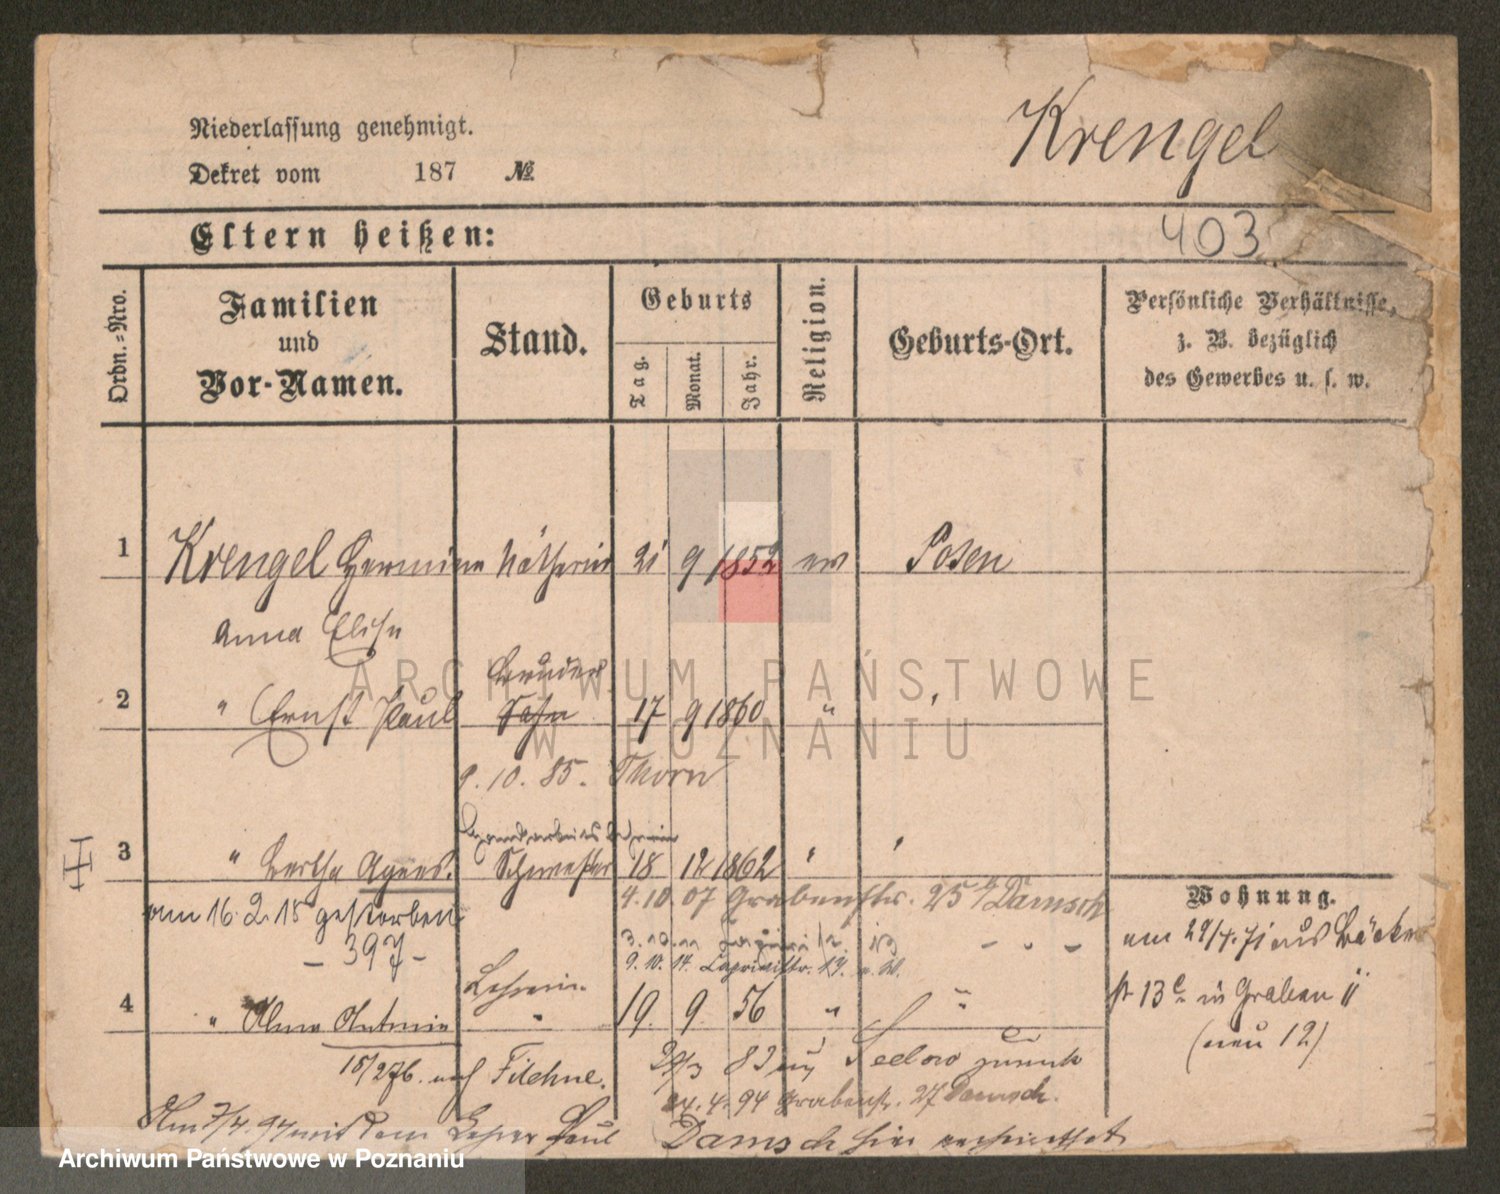 Niederlassung genehmigt.
Dekret vom 187 №
Krengel
403
Eltern heißen:
Ordn.-Nro.
Familien
und
Vor-Namen.
Stand.
Geburts
Tag.
Monat.
Jahr.
Religion.
Geburts-Ort.
Persönliche Verhältnisse,
z. B. bezüglich
des Gewerbes u. s. w.
1 Krengel Hermine Nätherin 21 9 1852 ev Posen
Anna Elise
Bruder
2 " Ernst Paul Sohn 17 9 1860 "
9. 10. 85. Thorn
Handarbeits Lehrerin
3 " Bertha Agnes. Schwester 18 12 1862 " "
4.10 07 Grabenstr. 25 b/ Damsch
am 16. 2. 15 gestorben
- 397 -
3.10.11
9. 10. 14. Caprivistr.
Wohnung.
am 29/4. 71 aus Bäcker
st 13 in Graben 11
(neu 12)
Lehrerin
4 " Alma Antonie " 19. 9. 56 " "
18/2 76. nach Filehne.
83 aus Seelow zurück
24. 4. 94 Grabenstr. 27 Damsch.
Am 7/4. 94 mit dem Lehrer Paul Damsch hier verheirathet
ARCHIWUM PAŃSTWOWE
W POZNANIU
Archiwum Państwowe w Poznaniu